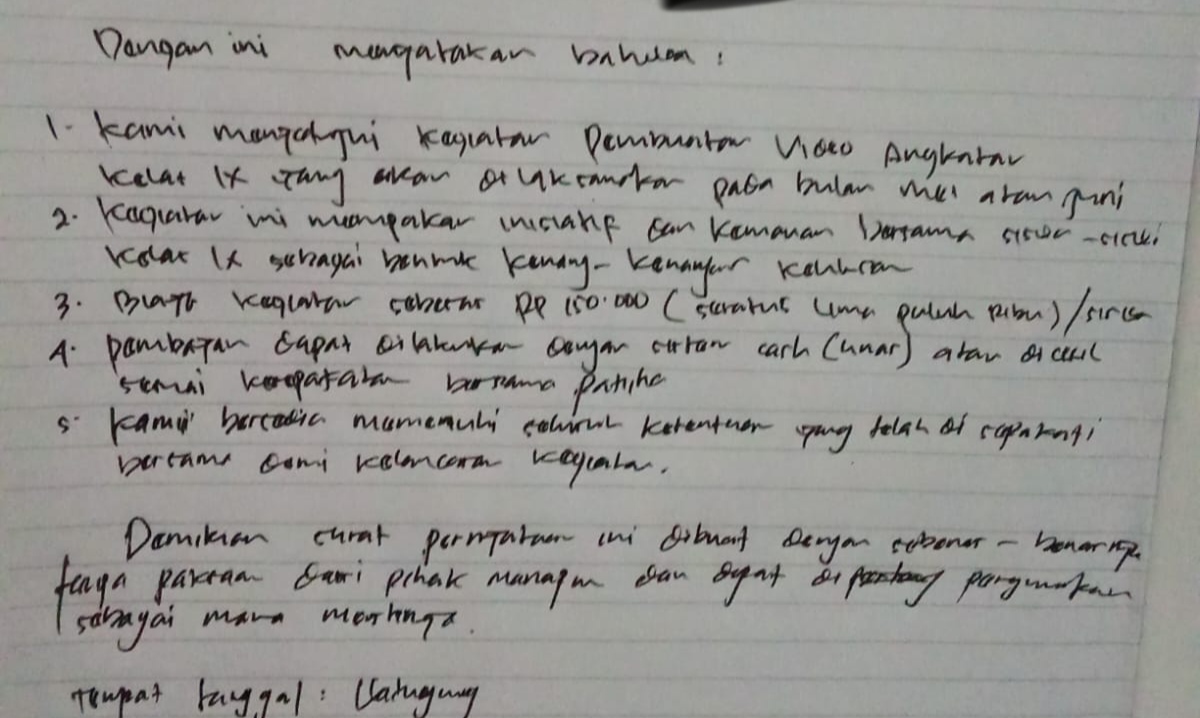 Dengan ini mengatakan bahwa :
1. Kami mengetahui kegiatan Pembuatan Video Angkatan
Kelas IX yang akan dilaksanakan pada bulan Mei atau Juni
2. Kegiatan ini merupakan inisiatif dan kemauan bersama siswa - siswi
Kelas IX sebagai bentuk kenang - kenangan kelulusan
3. Biaya kegiatan sebesar Rp 150.000 (seratus lima puluh ribu) /siswa
4. pembayaran dapat dilakukan dengan cash (tunai) atau dicicil
sesuai kesepakatan bersama
5. Kami bersedia memenuhi seluruh ketentuan yang telah di sepakati
bersama demi kelancaran kegiatan.
Demikian surat pernyataan ini dibuat dengan sebenar - benarnya
tanpa paksaan dari pihak manapun dan dapat di pergunakan
sebagai mana mestinya.
Tempat tanggal :